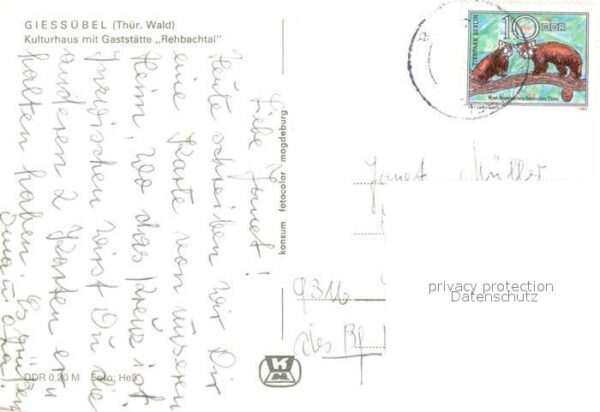 GIESSÜBEL (Thür. Wald)
Kulturhaus mit Gaststätte „Rehbachtal"
Liebe Janet!
Heute schreiben wir Dir
eine Karte von unserem
Heim, wo das Kreuz ist.
Inzwischen wirst Du die
anderen 2 Karten er=
halten haben. Es grüßen
Oma u. Opa!
DDR 0,20 M Foto: Heß
konsum fotocolor magdeburg
TIERPARK BERLIN
10 DDR
Janet Müller
9316
privacy protection
Datenschutz